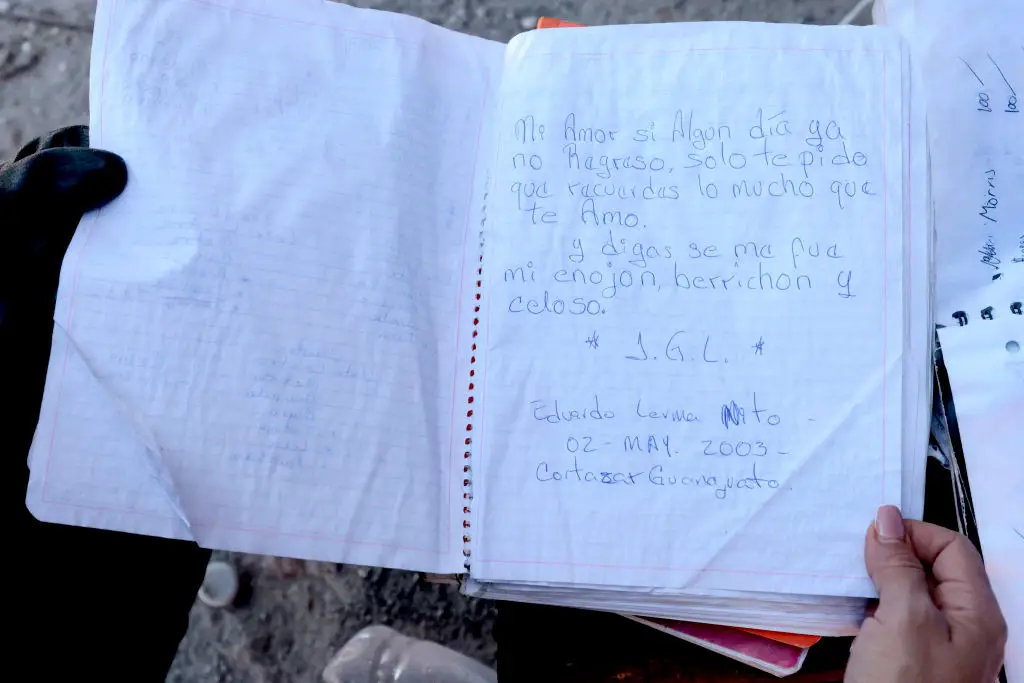 Mi Amor si Algun día ya
no Ragraso, solo te pido
qua racuerdas lo mucho que
te Amo.
y digas se ma fua
mi enojon, berrichon y
celoso.
* J.G.L. *
Eduardo Lerma Nito -
02-MAY. 2003-
Cortazar Guanajuato.
Morris
100
100